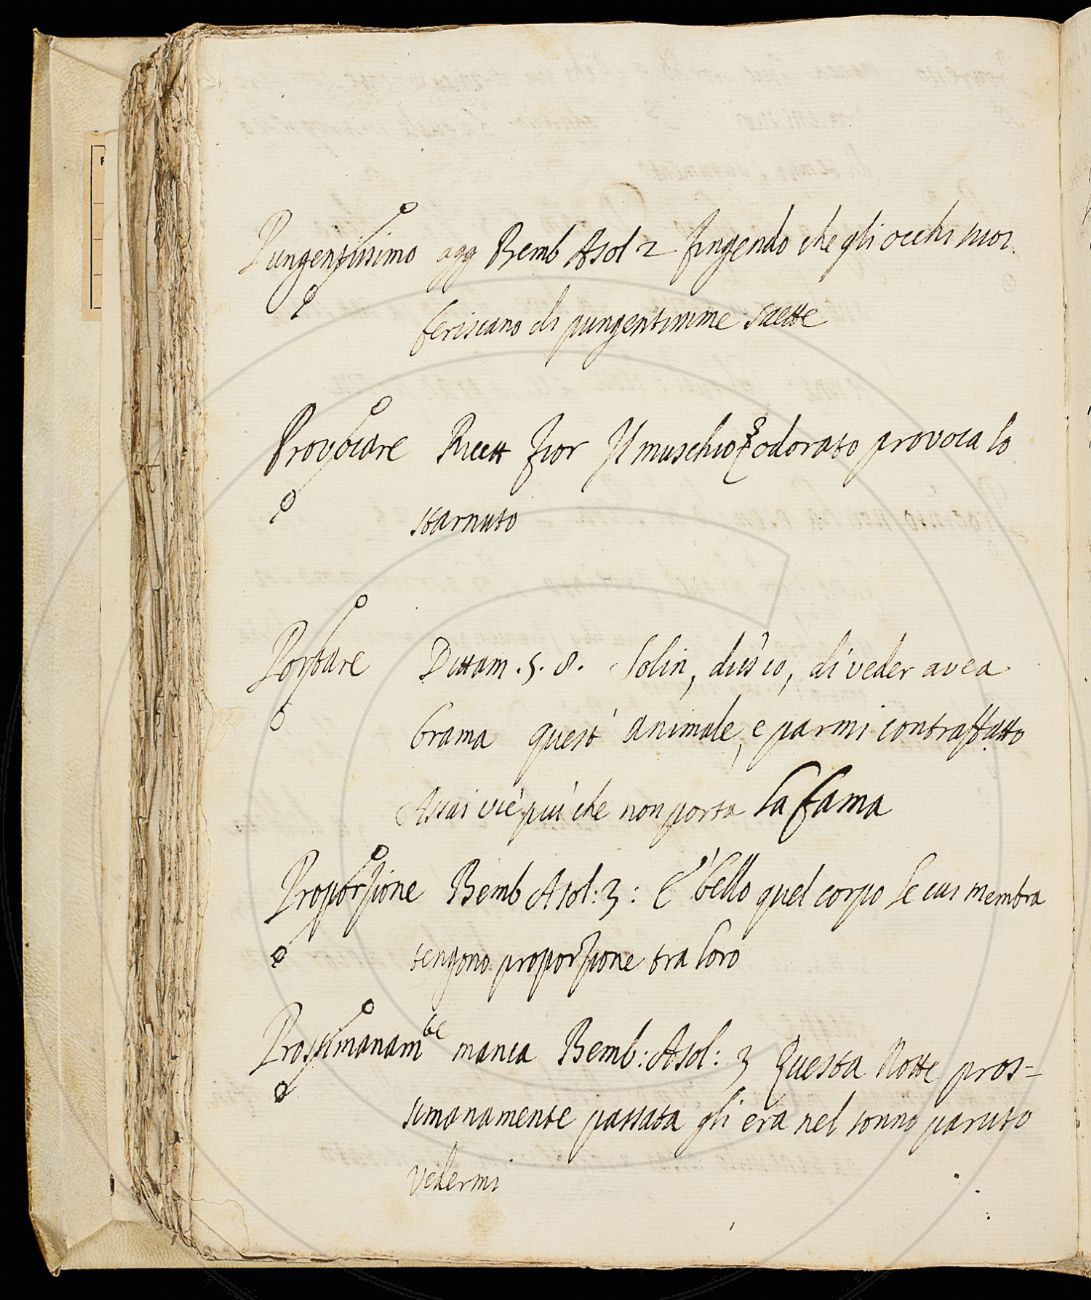 Pungentissimo agg Bemb Asol 2 fingendo che gli occhi suoi
feriscano di pungentissime saette
Provocare Ricett fior Il muschio odorato provoca lo
starnuto
Portare Dittam. 5. 8. Solin, diss'io, di veder avea
brama quest' animale, e parmi contraffatto
Assai vie più che non porta la fama
Proporzione Bemb Asol: 3: È bello quel corpo le cui membra
tengono proporzione tra loro
Prossimanam.te manca Bemb: Asol: 3 Questa Notte pros=
simanamente passata gli era nel sonno paruto
vedermi